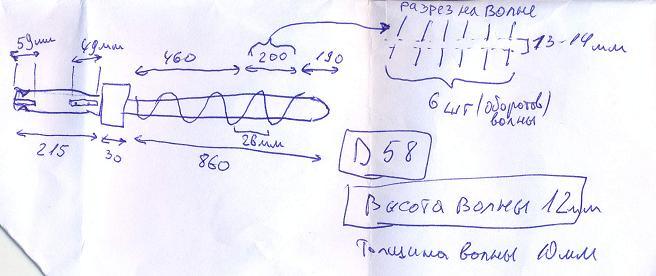 разрез на волне
59мм
49мм
460
200
190
13-14мм
6 шт (оборотов)
волны
26мм
215
30
860
D 58
Высота волны 12мм
Толщина волны 10мм